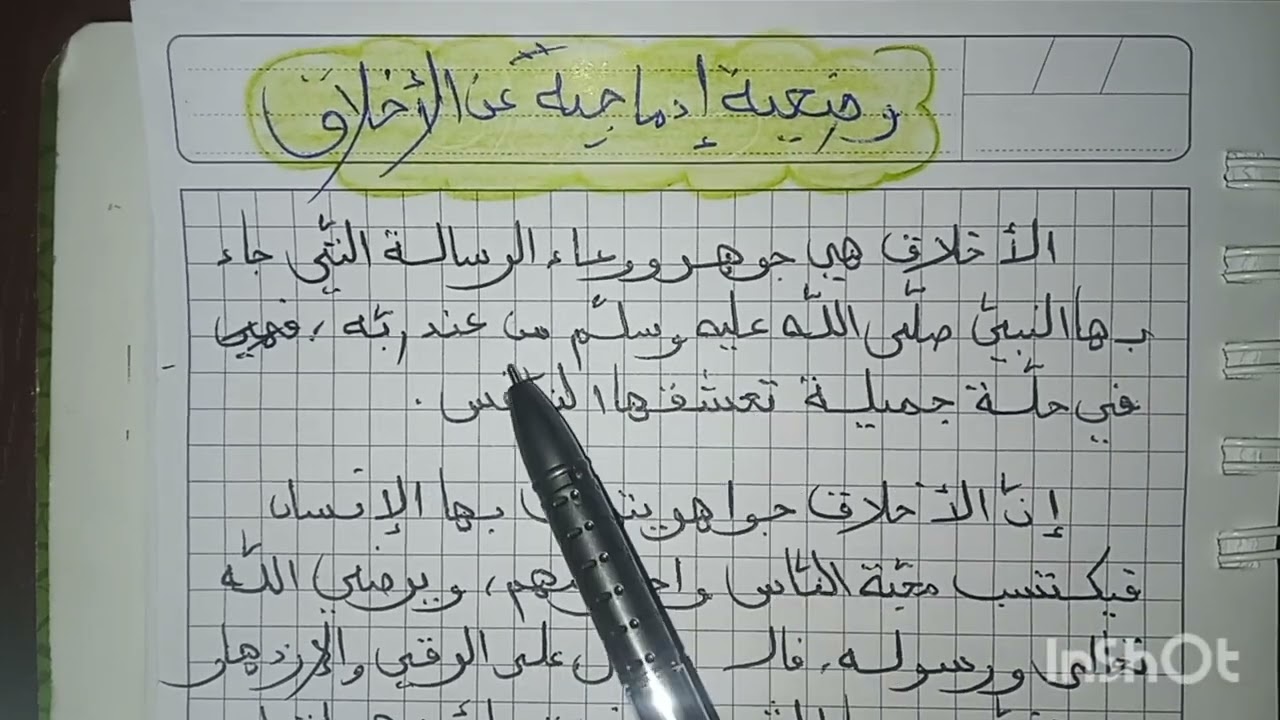 وضعية إدماجية عن الأخلاق
الأخلاق هي جوهر ووعاء الرسالة التّي جاء
بها النبيّ صلّى اللّه عليه وسلّم من عند ربّه، فهي
في حلّة جميلة تعشقها النفس.
إنّ الأخلاق جواهر بها الإنسان
فيكتسب محبّة النّاس ويرضي اللّه
تعالى ورسوله، على الرقي والإزدهار
InShOt